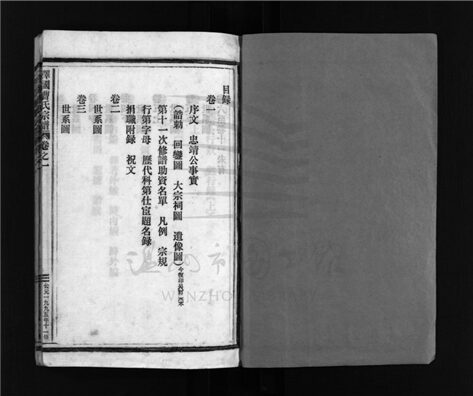 目錄
卷一
序文 忠靖公事實
(誥勅 回鑾圖 大宗祠圖 遺像圖)
第十一次修譜助資名單 凡例 宗規
行第字母 歷代科第仕宦題名錄
捐職附錄 祝文
卷二
世系圖
卷三
世系圖
氏宗譜 卷之一
公元一九九五年十一修
WENZHO